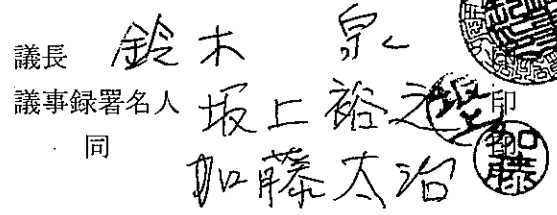 議長 鈴木 泉
議事録署名人 坂上裕之 印
同 加藤太治 印